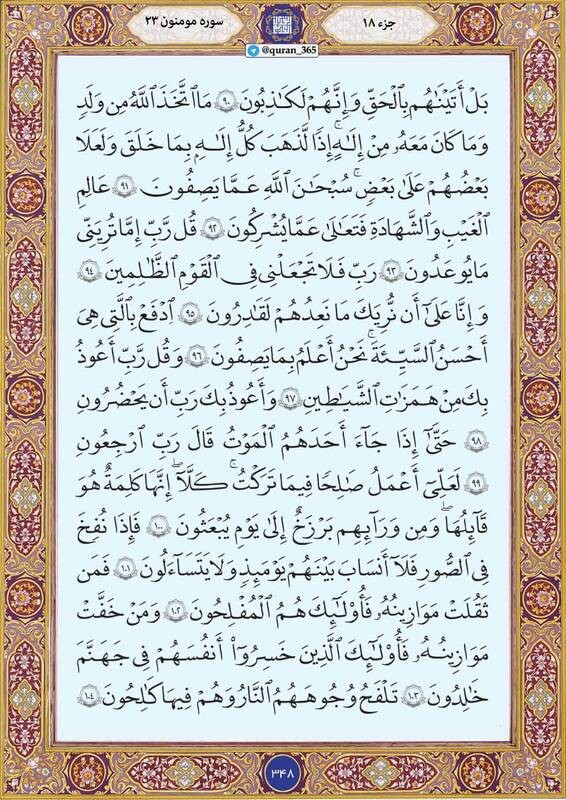 جزء ۱۸
سوره مومنون ۲۳
@quran_365
بَلْ أَتَيْنَٰهُم بِٱلْحَقِّ وَإِنَّهُمْ لَكَٰذِبُونَ ۹۰ مَا ٱتَّخَذَ ٱللَّهُ مِن وَلَدٍ
وَمَا كَانَ مَعَهُۥ مِنْ إِلَٰهٍۚ إِذًا لَّذَهَبَ كُلُّ إِلَٰهِۭ بِمَا خَلَقَ وَلَعَلَا
بَعْضُهُمْ عَلَىٰ بَعْضٍۚ سُبْحَٰنَ ٱللَّهِ عَمَّا يَصِفُونَ ۹۱ عَالِمِ
ٱلْغَيْبِ وَٱلشَّهَادَةِ فَتَعَالَىٰ عَمَّا يُشْرِكُونَ ۹۲ قُل رَّبِّ إِمَّا تُرِيَنِّي
مَا يُوعَدُونَ ۹۳ رَبِّ فَلَا تَجْعَلْنِي فِي ٱلْقَوْمِ ٱلظَّٰلِمِينَ ۹۴
وَإِنَّا عَلَىٰ أَن نُّرِيَكَ مَا نَعِدُهُمْ لَقَادِرُونَ ۹۵ ٱدْفَعْ بِٱلَّتِي هِيَ
أَحْسَنُ ٱلسَّيِّئَةَۚ نَحْنُ أَعْلَمُ بِمَا يَصِفُونَ ۹۶ وَقُل رَّبِّ أَعُوذُ
بِكَ مِنْ هَمَزَٰتِ ٱلشَّيَاطِينِ ۹۷ وَأَعُوذُ بِكَ رَبِّ أَن يَحْضُرُونِ
۹۸ حَتَّىٰٓ إِذَا جَآءَ أَحَدَهُمُ ٱلْمَوْتُ قَالَ رَبِّ ٱرْجِعُونِ
۹۹ لَعَلِّيٓ أَعْمَلُ صَٰلِحًا فِيمَا تَرَكْتُۚ كَلَّآۖ إِنَّهَا كَلِمَةٌ هُوَ
قَآئِلُهَاۖ وَمِن وَرَآئِهِم بَرْزَخٌ إِلَىٰ يَوْمِ يُبْعَثُونَ ۱۰۰ فَإِذَا نُفِخَ
فِي ٱلصُّورِ فَلَآ أَنسَابَ بَيْنَهُمْ يَوْمَئِذٍ وَلَا يَتَسَآءَلُونَ ۱۰۱ فَمَن
ثَقُلَتْ مَوَازِينُهُۥ فَأُو۟لَٰٓئِكَ هُمُ ٱلْمُفْلِحُونَ ۱۰۲ وَمَنْ خَفَّتْ
مَوَازِينُهُۥ فَأُو۟لَٰٓئِكَ ٱلَّذِينَ خَسِرُوٓا۟ أَنفُسَهُمْ فِي جَهَنَّمَ
خَٰلِدُونَ ۱۰۳ تَلْفَحُ وُجُوهَهُمُ ٱلنَّارُ وَهُمْ فِيهَا كَٰلِحُونَ ۱۰۴
۳۴۸